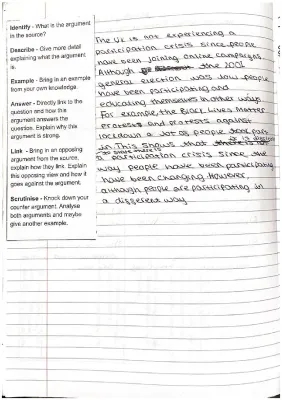 Identify - What is the argument
in the source?
Describe - Give more detail
explaining what the argument
is.
Example - Bring in an example
from your own knowledge.
Answer - Directly link to the
question and how this
argument answers the
question. Explain why this
argument is strong.
Link - Bring in an opposing
argument from the source,
explain how they link. Explain
this opposing view and how it
goes against the argument.
Scrutinise - Knock down your
counter argument. Analyse
both arguments and maybe
give another example.
The UK is not experiencing a
participation crisis since people
have been joining online campaigns.
Although the 2001
general election was low people
have been participating and
educating themselves in other ways
For example, the Black Lives Matter
protests and protests against
lockdown a lot of people took part
in. This shows that there is
a participation crisis since the
way people have been participating
have been changing. However,
although people are participating in
a different way